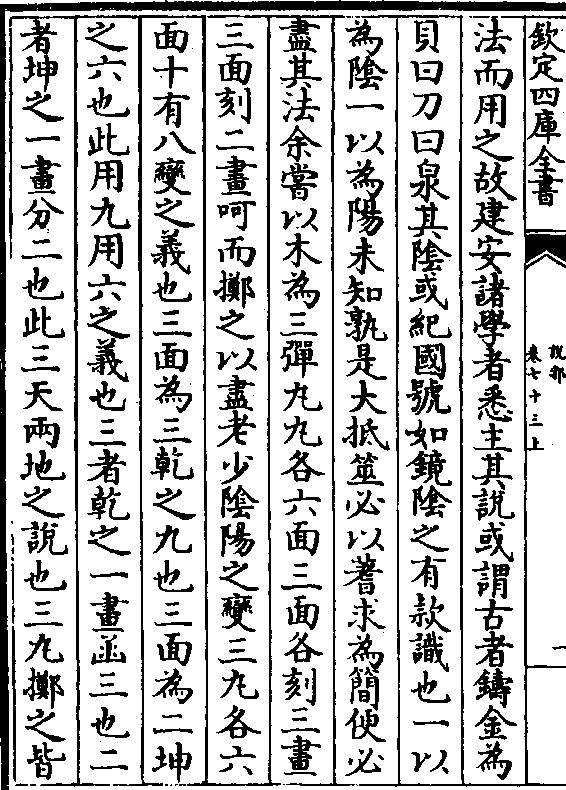 欽定四庫全書
說郛
卷七十三上
一
法而用之故建安諸學者悉主其說或謂古者鑄金為
貝曰刀曰泉其陰或紀國號如鏡陰之有款識也一以
為陰一以為陽未知孰是大抵筮必以蓍求為簡便必
盡其法余嘗以木為三彈丸丸各六面三面各刻三畫
三面刻二畫呵而擲之以盡老少陰陽之變三丸各六
面十有八變之義也三面為三乾之九也三面為二坤
之六也此用九用六之義也三者乾之一畫函三也二
者坤之一畫分二也此三天兩地之說也三丸擲之皆